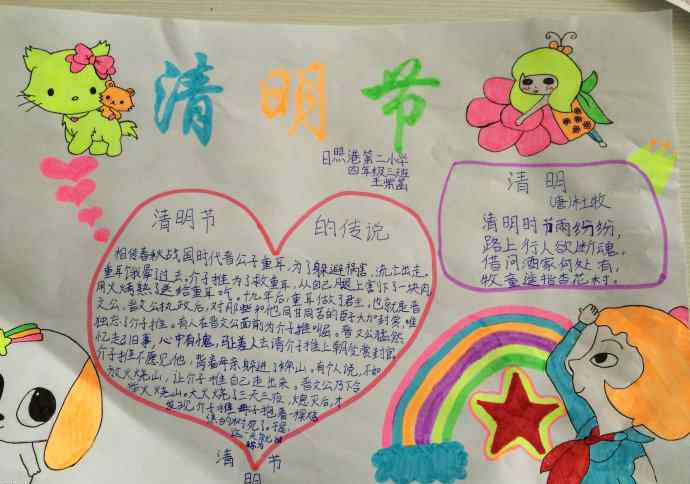 清明节
日照港第二小学
四年级三班
清明节 的传说
相传春秋战国时代晋公子重耳,为了躲避祸害,流亡出走。
重耳饿晕了过去。介子推为了救重耳,从自己腿上割下一块肉
用火烤熟了送给重耳吃。十九年后,重耳做了君主,也就是晋
文公。晋文公执政后,对那些和他同甘共苦的臣子大加封赏,唯
独忘了介子推。有人在晋文公面前为介子推叫屈。晋文公猛然
忆起旧事,心中有愧,马上差人去请介子推上朝受赏封官。
介子推不愿见他,背着母亲躲进了绵山。有个人说,不如
放火烧山,让介子推自己走出来。晋文公乃下令
举火烧山。大火烧了三天三夜,熄灭后,才
发现介子推母子抱着一棵烧
清 节
明
清明
(唐)杜牧
清明时节雨纷纷,
路上行人欲断魂。
借问酒家何处有,
牧童遥指杏花村。